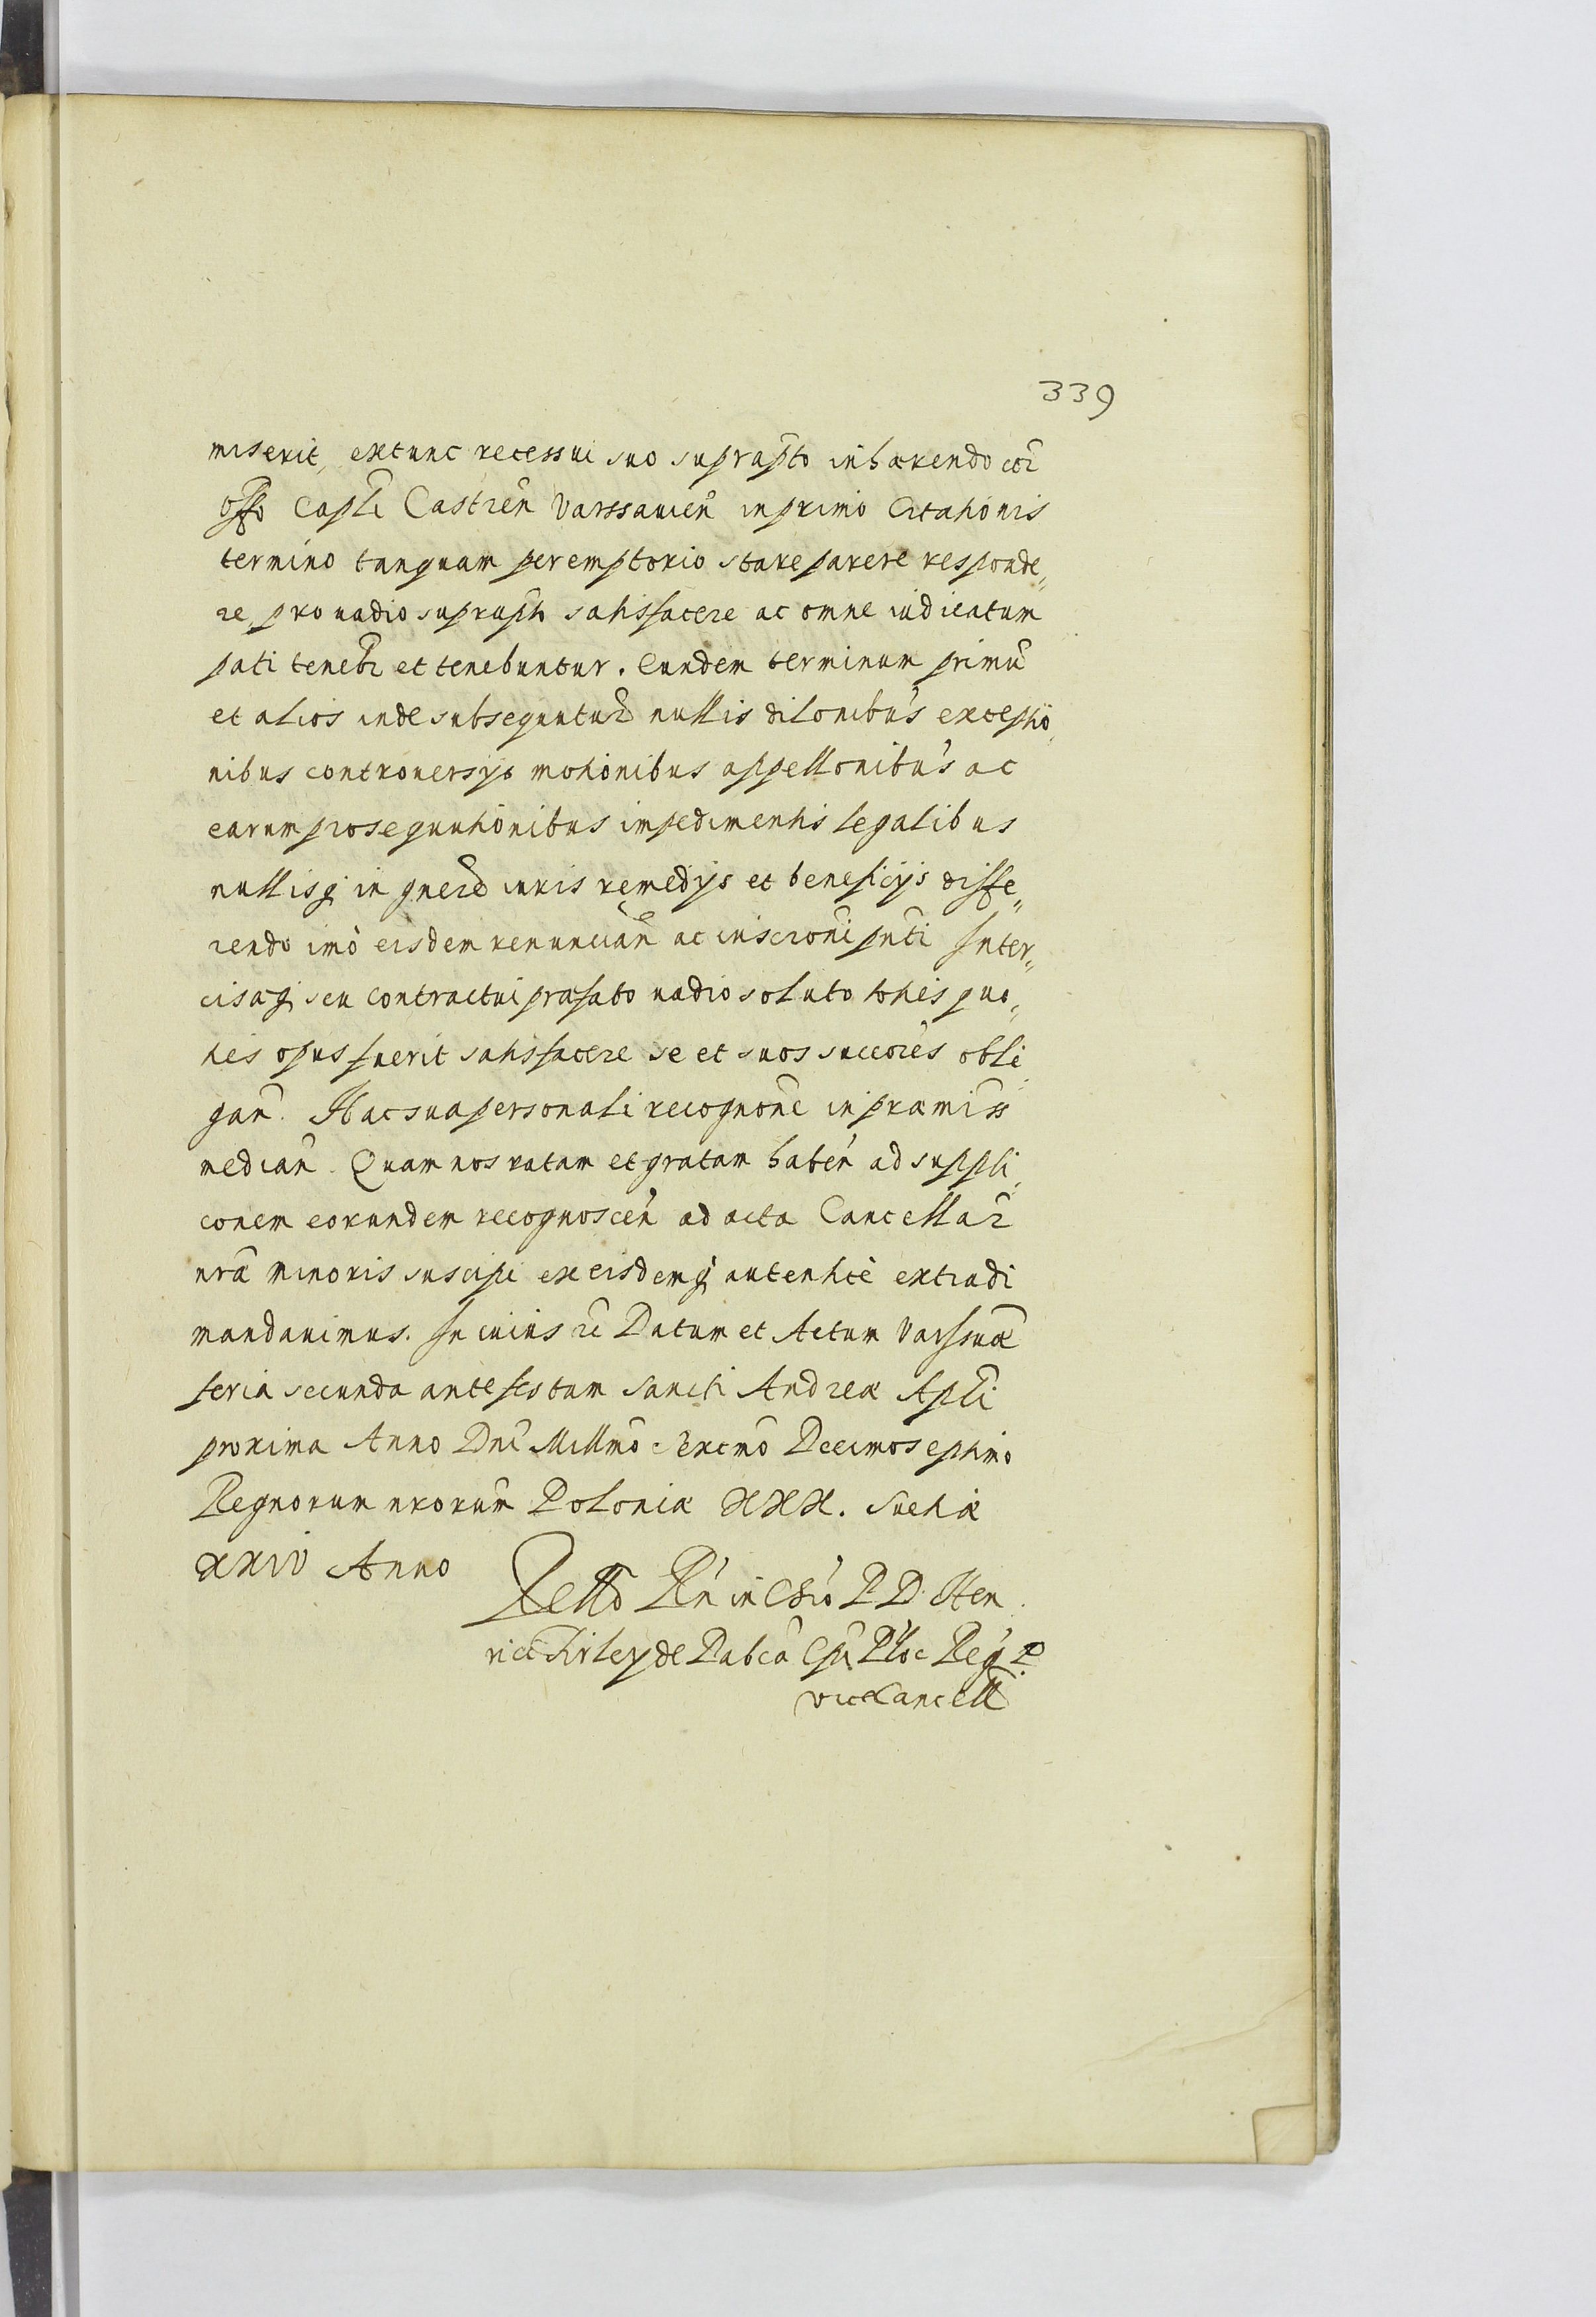 339
miserit, extunc recessui suo suprapto inhaerendo cor
offo Capli Castren Varssavien in primo Citationis
termino tanquam peremptorio stare parere responde„
re, pro vadio suprapti satisfacere ac omne iudicatum
pati tenebr et tenebuntur. Eundem terminum primu
et alios inde subsequutur nullis dilonibus exceptio„
nibus controversijs motionibus appellonibus ac
earum prosequutionibus impedimentis legalibus
nullisq in gnere iuris remedijs et beneficijs diffe„
rendo imò eisdem renuncian ac inscroni pnti Inter„
cisaq seu contractui praefato vadio soluto toties quo„
ties opus fuerit satisfacere se et suos succores obli„
gan. Hac sua personali recognone in praemiss
median. Quam nos ratam et gratam haben ad suppli„
conem eorundem recognoscen ad acta Cancellar
nra minoris suscipi ex eisdemq autentice extradi
mandavimus. In cuius rei Datum et Actum Varssvae
feria secunda ante festum Sancti Andreae Apli
proxima Anno Dni Millmo Sexcmo Decimoseptimo
Regnorum nrorum Poloniae XXX. Suetiae
XXIV Anno
Rello Rn in Chro P. D. Hen
rici Firley de Dabro Epi Ploc Reg P.
viceCancell